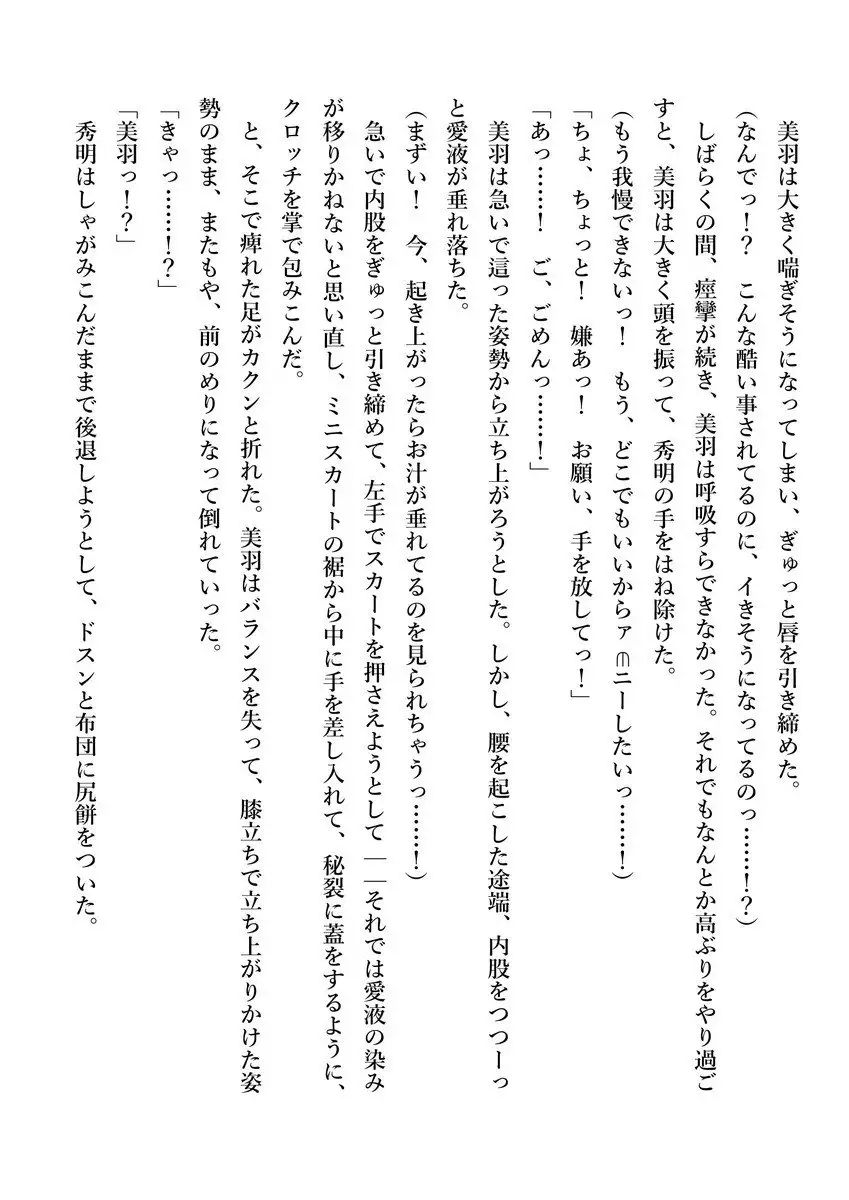 美羽は大きく喘ぎそうになってしまい、ぎゅっと唇を引き締めた。
(なんでっ!?　こんな酷い事されてるのに、イきそうになってるのっ……!?)
しばらくの間、痙攣が続き、美羽は呼吸すらできなかった。それでもなんとか高ぶりをやり過ご
すと、美羽は大きく頭を振って、秀明の手をはね除けた。
(もう我慢できないっ!　もう、どこでもいいからァ⋒ニーしたいっ……!)
「ちょ、ちょっと!　嫌あっ!　お願い、手を放してっ!」
「あっ……!　ご、ごめんっ……!」
美羽は急いで這った姿勢から立ち上がろうとした。しかし、腰を起こした途端、内股をつつーっ
と愛液が垂れ落ちた。
(まずい!　今、起き上がったらお汁が垂れてるのを見られちゃうっ……!)
急いで内股をぎゅっと引き締めて、左手でスカートを押さえようとして――それでは愛液の染み
が移りかねないと思い直し、ミニスカートの裾から中に手を差し入れて、秘裂に蓋をするように、
クロッチを掌で包みこんだ。
と、そこで痺れた足がカクンと折れた。美羽はバランスを失って、膝立ちで立ち上がりかけた姿
勢のまま、またもや、前のめりになって倒れていった。
「きゃっ……!?」
「美羽っ!?」
秀明はしゃがみこんだままで後退しようとして、ドスンと布団に尻餅をついた。